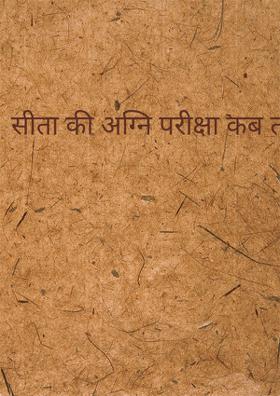 सीता की अग्नि परीक्षा कब